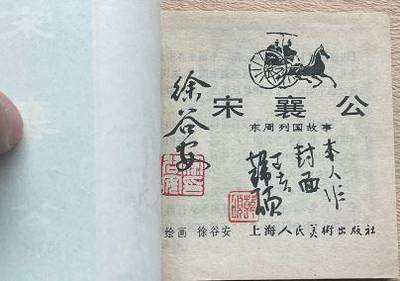 宋襄公
东周列国故事
徐谷安
本人作
封面
绘画 徐谷安 上海人民美術出版社